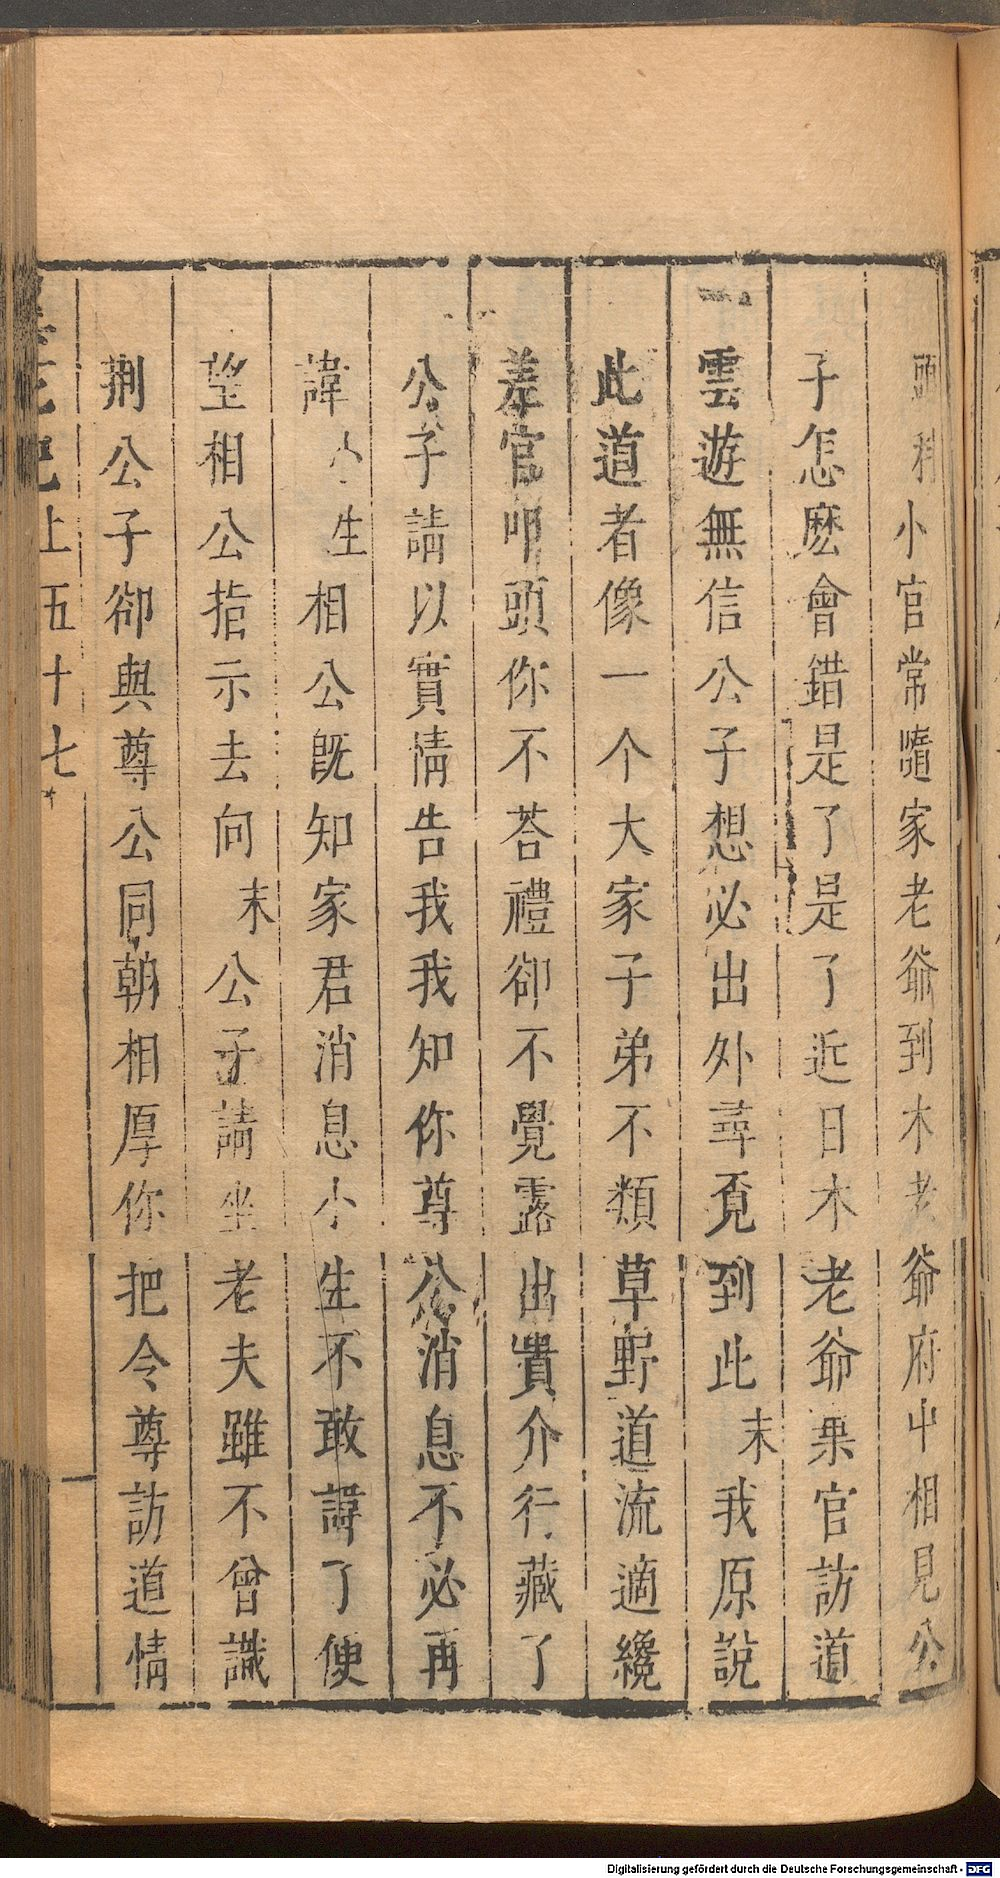 頭科小官常隨家老爺到木老爺府中相見公
子怎麽會錯是了是了近日木老爺果官訪道
雲遊無信公子想必出外尋覔到此末我原說
此道者像一个大家子弟不類草野道流適纔
差官叩頭你不荅禮卻不覺露出貴介行藏了
公子請以實情告我我知你尊公消息不必再
諱小生相公既知家君消息小生不敢諱了便
望相公指示去向末公子請坐老夫雖不曾識
荆公子卻與尊公同朝相厚你把令尊訪道情
上五十七
Digitalisierung gefördert durch die Deutsche Forschungsgemeinschaft - DFG